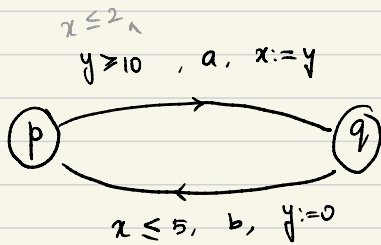 x ≤ 2 ∧
y ≥ 10 , a, x := y
p q
x ≤ 5, b, y := 0